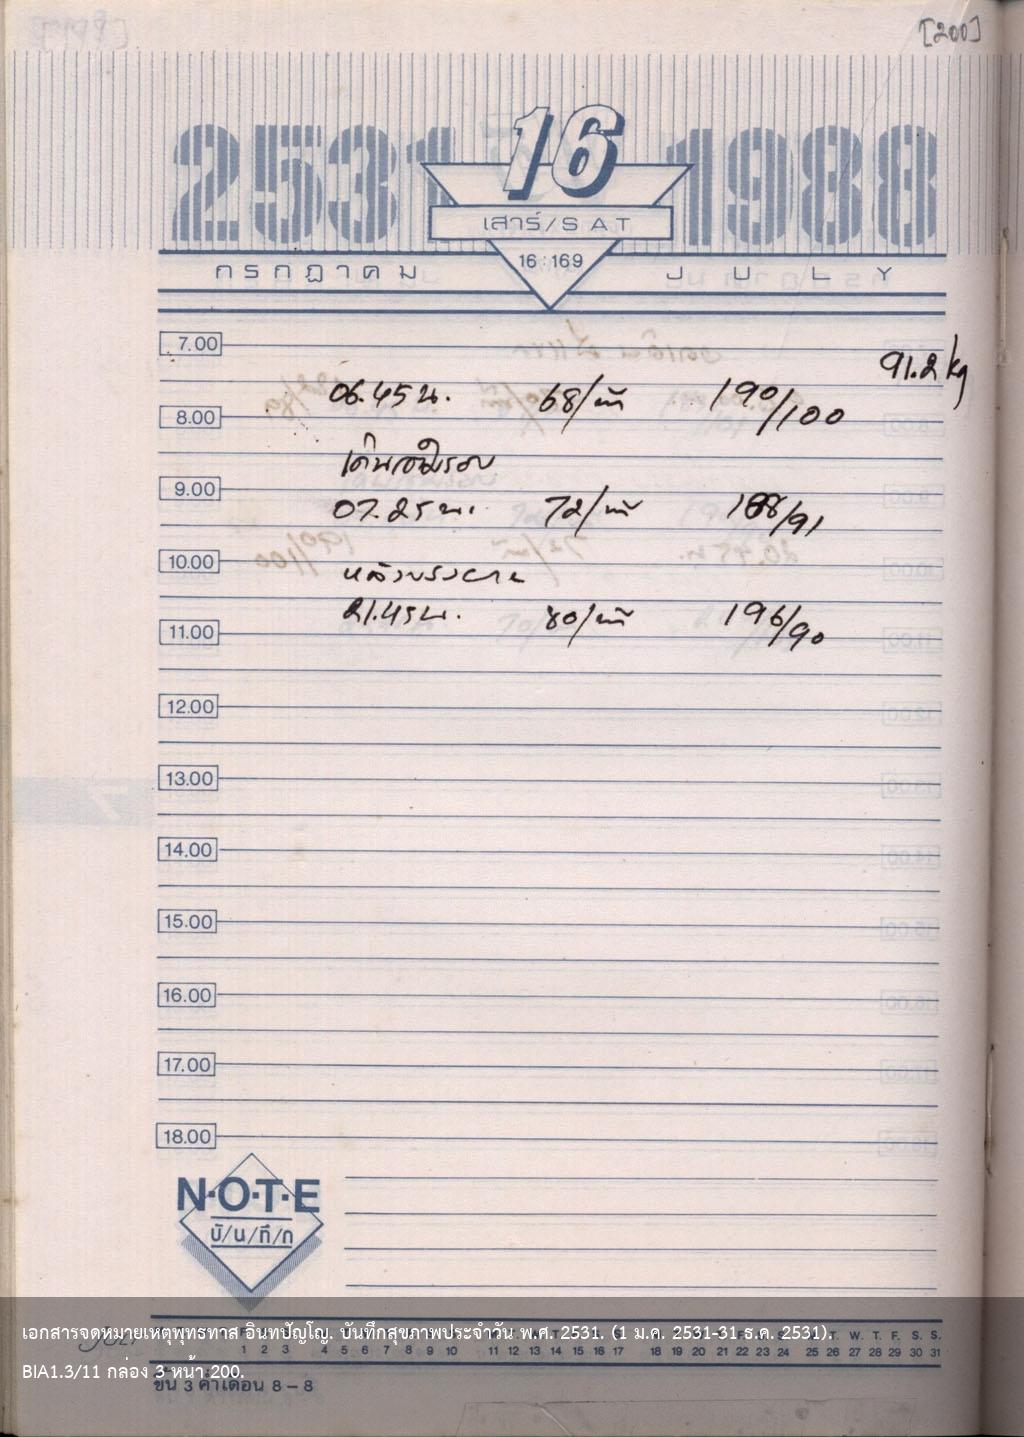 [200]
2531
16
1988
เสาร์/SAT
16:169
กรกฎาคม
JULY
7.00
91.2 kg
06.45 น. 68/นาที 190/100
8.00
เดิน
9.00
07.25 น. 72/นาที 188/91
10.00
หลัง
21.45 น. 80/นาที 196/90
11.00
12.00
13.00
14.00
15.00
16.00
17.00
18.00
N·O·T·E
บั/น/ทึ/ก
เอกสารจดหมายเหตุพุทธทาส อินทปัญโญ. บันทึกสุขภาพประจำวัน พ.ศ. 2531. (1 ม.ค. 2531-31 ธ.ค. 2531).
1 2 3 4 5 6 7 8 9 10 11 12 13 14 15 16 17 18 19 20 21 22 23 24 25 26 27 28 29 30 31
BIA1.3/11 กล่อง 3 หน้า 200.
ขึ้น 3 ค่ำเดือน 8 – 8